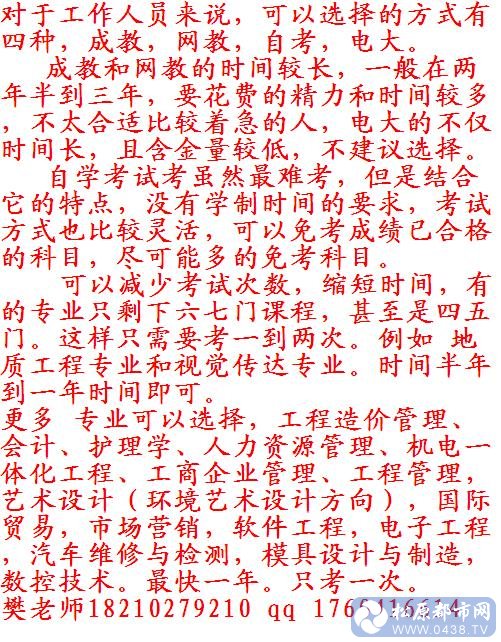 对于工作人员来说，可以选择的方式有
四种，成教，网教，自考，电大。
成教和网教的时间较长，一般在两
年半到三年，要花费的精力和时间较多
，不太合适比较着急的人，电大的不仅
时间长，且含金量较低，不建议选择。
自学考试考虽然最难考，但是结合
它的特点，没有学制时间的要求，考试
方式也比较灵活，可以免考成绩已合格
的科目，尽可能多的免考科目。
可以减少考试次数，缩短时间，有
的专业只剩下六七门课程，甚至是四五
门。这样只需要考一到两次。例如 地
质工程专业和视觉传达专业。时间半年
到一年时间即可。
更多 专业可以选择，工程造价管理、
会计、护理学、人力资源管理、机电一
体化工程、工商企业管理、工程管理，
艺术设计（环境艺术设计方向），国际
贸易，市场营销，软件工程，电子工程
，汽车维修与检测，模具设计与制造，
数控技术。最快一年。只考一次。
樊老师18210279210 qq
松原都市网
www.0438.TV